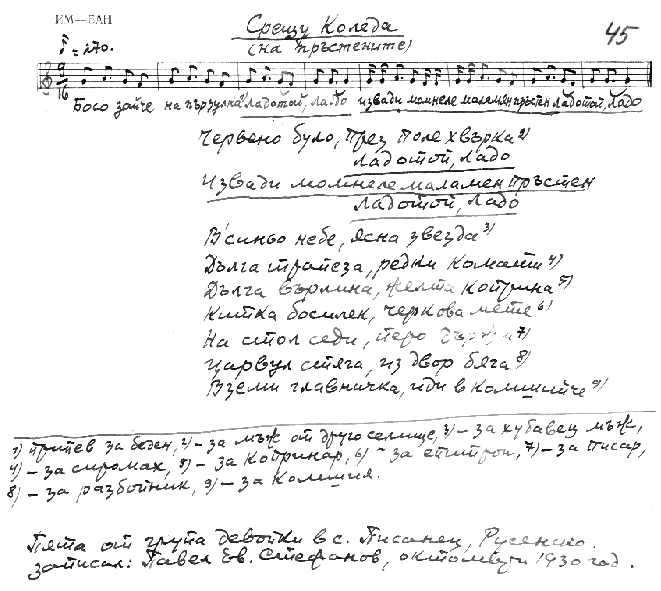 ИМ—БАН
Срещу Коледа
45
(на пръстените)
♪ = 270.
16
Босо зайче на пързулка¹⁾ ладотой, ладо извади момнеле маламен пръстен ладотой, ладо
Червено було, през поле хвърка²⁾
Ладотой, Ладо
Извади момнеле маламен пръстен
Ладотой, Ладо
В синьо небе, ясна звезда³⁾
Дълга трапеза, редки комати⁴⁾
Дълга върлина, желта коприна⁵⁾
Китка босилек, черкова мете⁶⁾
На стол седи, перо държи⁷⁾
Царвул стяга, из двор бяга⁸⁾
Вземи главничка, иди в комшийче⁹⁾
1) Припев за беден, 2) – за мъж от друго селище, 3) – за хубавец мъж,
4) – за сиромах, 5) – за копринар, 6) – за епитроп, 7) – за писар,
8) – за разбойник, 9) – за комшия.
Пята от група девойки в с. Писанец, Русенско.
Записал: Павел Ев. Стефанов, октомври 1930 год.